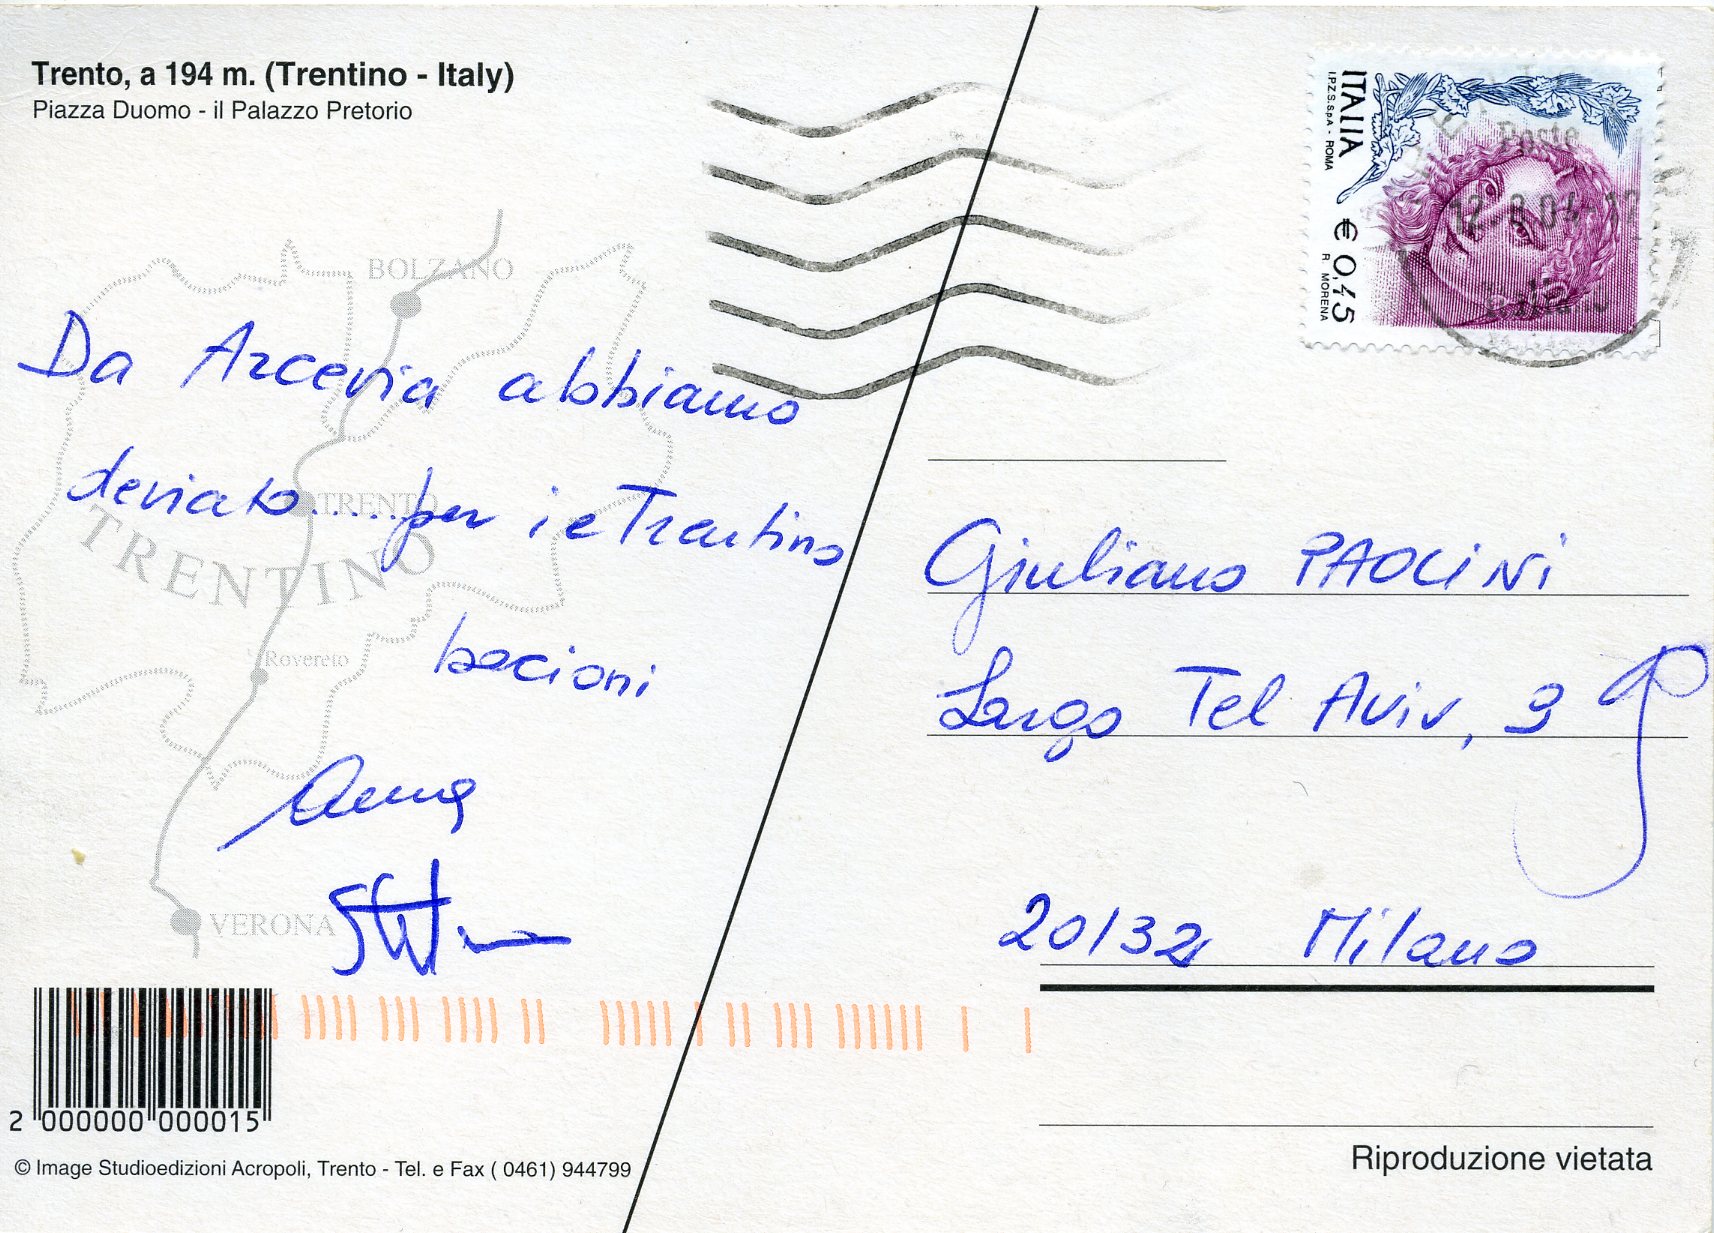 Trento, a 194 m. (Trentino - Italy)
Piazza Duomo - il Palazzo Pretorio
ITALIA
I.P.Z.S. S.p.A. - ROMA
€ 0,45
R. MORENA
Poste
12 8 04-12
BOLZANO
TRENTO
TRENTINO
Rovereto
VERONA
Da Arcevia abbiamo
deviato......per i e Trentino
bacioni
Anna
Giuliano PAOLINI
Largo Tel Aviv, 3
20132 Milano
2 000000 000015
© Image Studioedizioni Acropoli, Trento - Tel. e Fax ( 0461) 944799
Riproduzione vietata